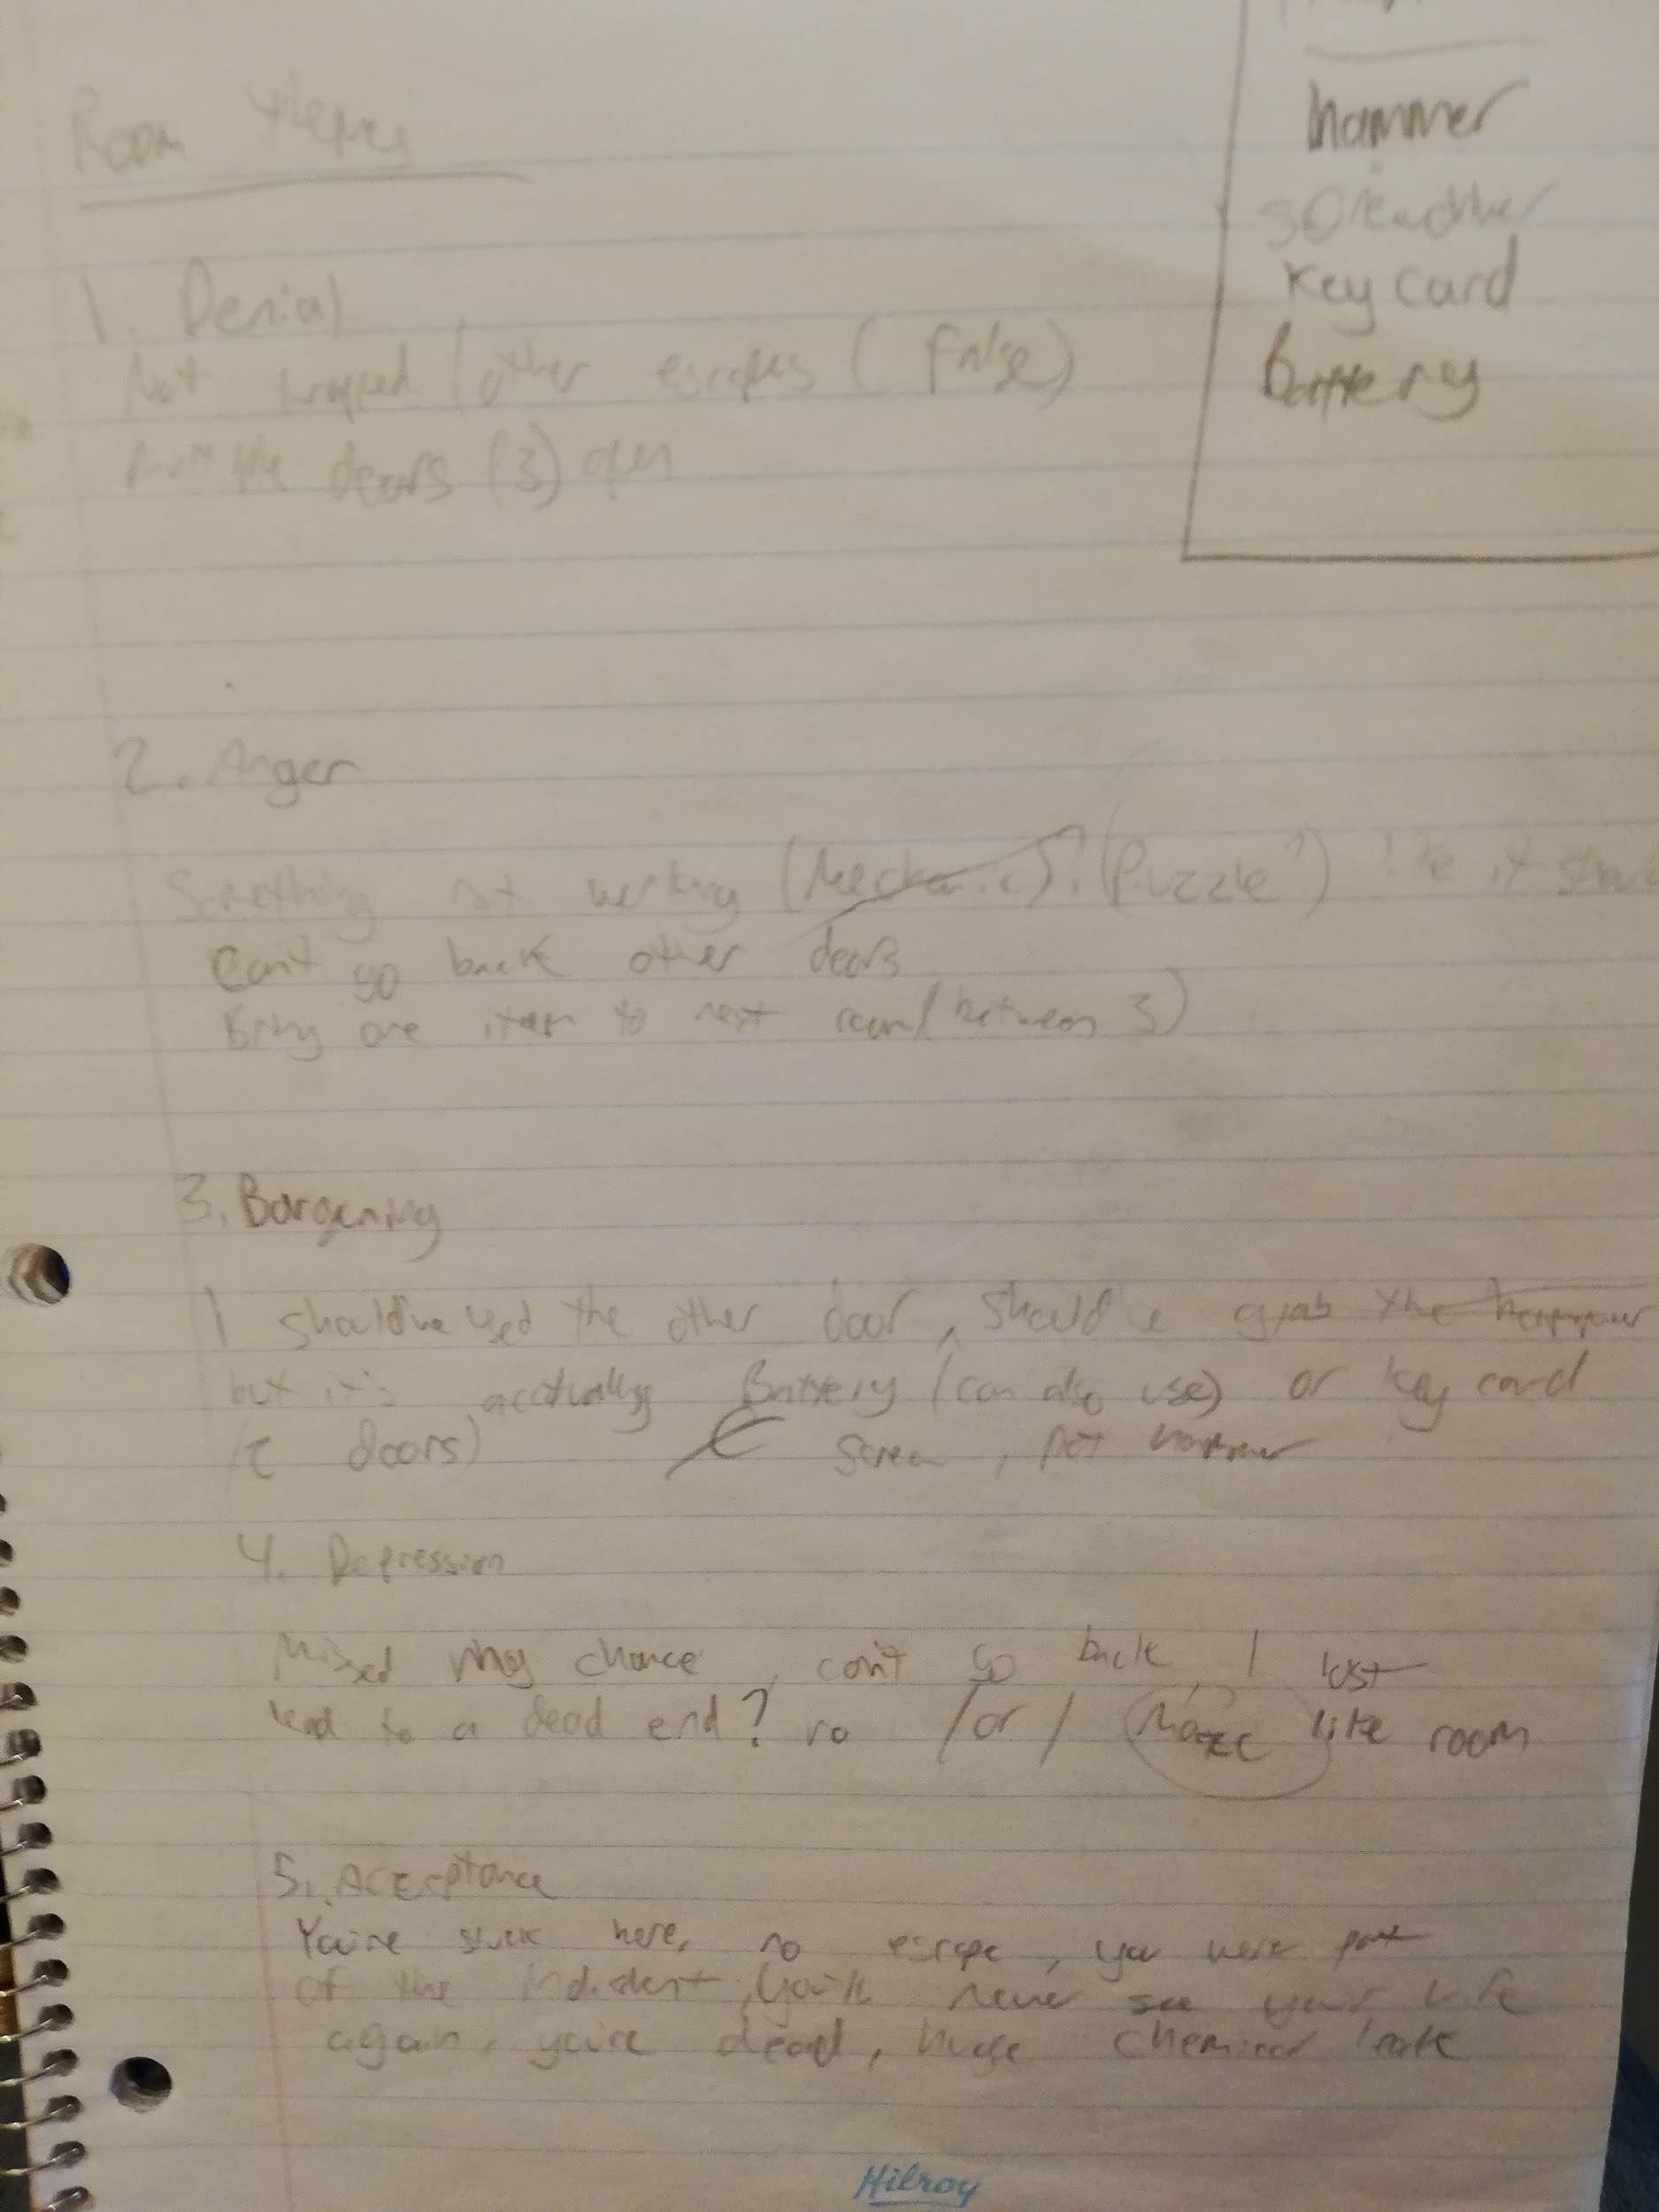 Room themes
hammer
screwdriver
Key card
battery
1. Denial
Not trapped (other escapes (false)
multiple doors (3) open
2. Anger
Something not working (Mechanic)? (Puzzle?) like it
Can't go back other doors
Bring one item to next room (between 3)
3. Bargening
I should've used the other door, should've grab the hammer
but it's acctually Battery (can also use) or key card
(2 doors) screw, not hammer
4. Depression
Missed my chance, can't go back, I lost
lead to a dead end? no /or/ Maze like room
5. Acceptance
You're stuck here, no escape, you were part
of the indident, you'll never see your wife
again, you're dead, huge chemical leak
Hilroy